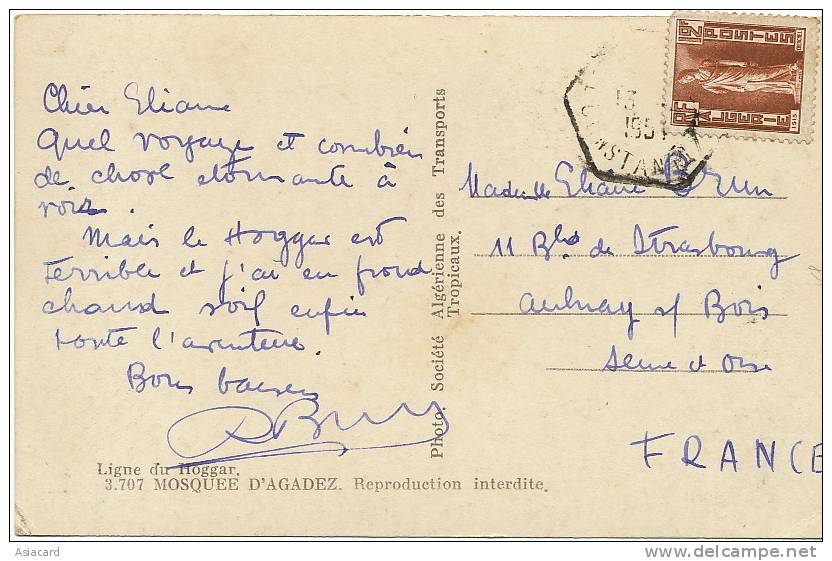 Chère Eliane
Quel voyage et combien
de chose étonnante à
voir.
Mais le Hoggar est
terrible et j'ai eu froid
chaud soif enfin
toute l'aventure.
Bons baisers
RBrun
Ligne du Hoggar.
3.707 MOSQUEE D'AGADEZ. Reproduction interdite.
Photo. Société Algérienne des Transports
Tropicaux.
12F
POSTES
RF
ALGERIE
13
195
CONSTANTINE
Madelle Eliane Brun
11 Bld de Strasbourg
Aulnay s/ Bois
Seine et Oise
FRANCE
Asiacard
delcampe.net